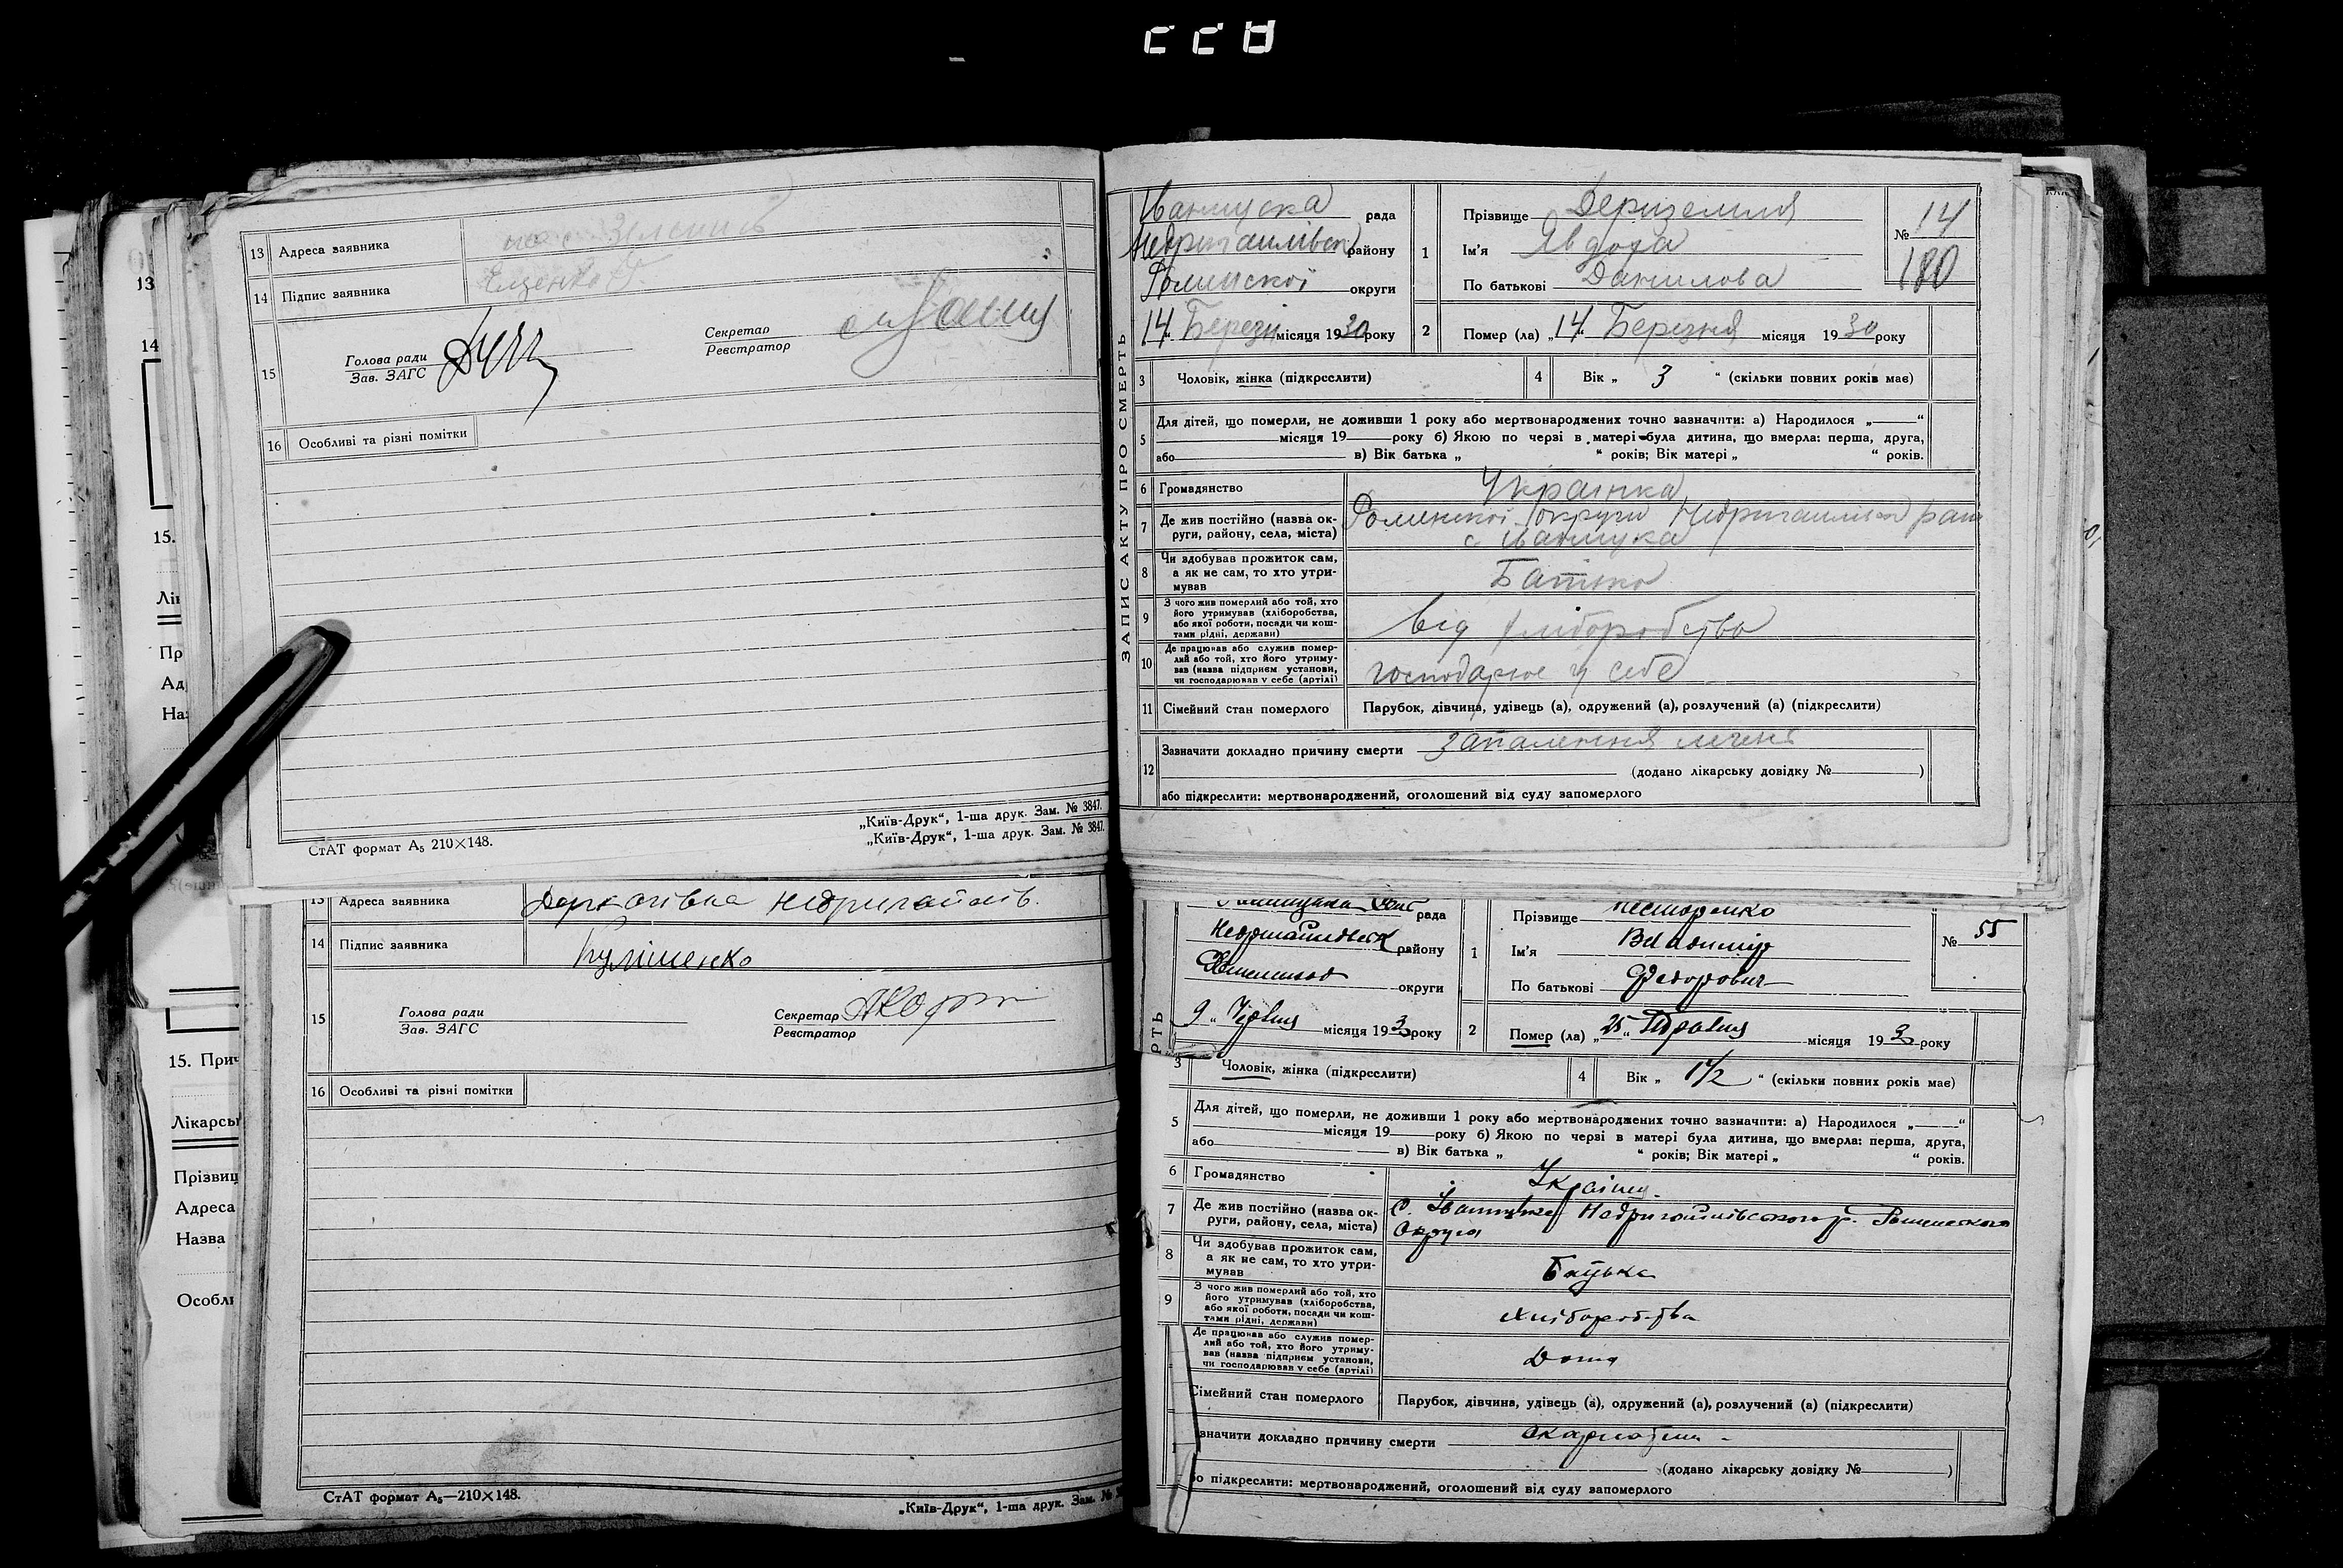 13 Адреса заявника
14 Підпис заявника Єщенко
15 Голова ради
Зав. ЗАГС
Секретар
Реєстратор
16 Особливі та різні помітки
„Київ-Друк“, 1-ша друк. Зам. № 3847.
„Київ-Друк“, 1-ша друк. Зам. № 3847.
СтАТ формат А₅ 210×148.
ЗАПИС АКТУ ПРО СМЕРТЬ
Іваницска рада
Недригайлівськ району
Роминскої округи
14 Березн місяця 1930 року
1 Прізвище Дериземля
Ім'я Явдоха
По батькові Данилова
№ 14
180
2 Помер (ла) „14“ Березня місяця 1930 року
3 Чоловік, жінка (підкреслити)
4 Вік „ 3 “ (скільки повних років має)
5 Для дітей, що померли, не доживши 1 року або мертвонароджених точно зазначити: а) Народилося „ “
місяця 19 року б) Якою по черзі в матері була дитина, що вмерла: перша, друга,
або в) Вік батька „ “ років; Вік матері „ “ років.
6 Громадянство Українка
7 Де жив постійно (назва ок-
руги, району, села, міста)
Роменскої округи Недригайлівськ рай
с Іваницка
8 Чи здобував прожиток сам,
а як не сам, то хто утри-
мував
Батько
9 З чого жив померлий або той, хто
його утримував (хліборобства,
або якої роботи, посади чи кош-
тами рідні, держави)
від хліборобства
10 Де працював або служив помер-
лий або той, хто його утриму-
вав (назва підприєм установи,
чи господарював у себе (артілі)
господарює у себе
11 Сімейний стан померлого Парубок, дівчина, удівець (а), одружений (а), розлучений (а) (підкреслити)
12 Зазначити докладно причину смерти Запалення легень
(додано лікарську довідку № )
або підкреслити: мертвонароджений, оголошений від суду запомерлого
13 Адреса заявника Деркачівка Недригайлів.
14 Підпис заявника Кулішенко
15 Голова ради
Зав. ЗАГС
Секретар
Реєстратор
16 Особливі та різні помітки
СтАТ формат А₅—210×148.
„Київ-Друк“, 1-ша друк. Зам. №
РТЬ
рада
Недригайлівськ району
округи
9 „ Червня місяця 193 року
1 Прізвище Несторенко
Ім'я Владимир
По батькові Федорович
№ 55
2 Помер (ла) „25“ Травня місяця 193 року
3 Чоловік, жінка (підкреслити)
4 Вік „ 1½ “ (скільки повних років має)
5 Для дітей, що померли, не доживши 1 року або мертвонароджених точно зазначити: а) Народилося „ “
місяця 19 року б) Якою по черзі в матері була дитина, що вмерла: перша, друга,
або в) Вік батька „ “ років; Вік матері „ “ років.
6 Громадянство Українц.
7 Де жив постійно (назва ок-
руги, району, села, міста)
с. Іваницька Недригайлівського р. Роменского
Округа
8 Чи здобував прожиток сам,
а як не сам, то хто утри-
мував
Батька
9 З чого жив померлий або той, хто
його утримував (хліборобства,
або якої роботи, посади чи кош-
тами рідні, держави)
Хліборобства
Де працював або служив помер-
лий або той, хто його утриму-
вав (назва підприєм установи,
чи господарював у себе (артілі)
Дома
Сімейний стан померлого Парубок, дівчина, удівець (а), одружений (а), розлучений (а) (підкреслити)
значити докладно причину смерти Скарлатина
(додано лікарську довідку № )
бо підкреслити: мертвонароджений, оголошений від суду запомерлого
13
14
15.
Лік
Пр
Ад
На
15. Прич
Лікарсь
Прізвищ
Адреса
Назва
Особл